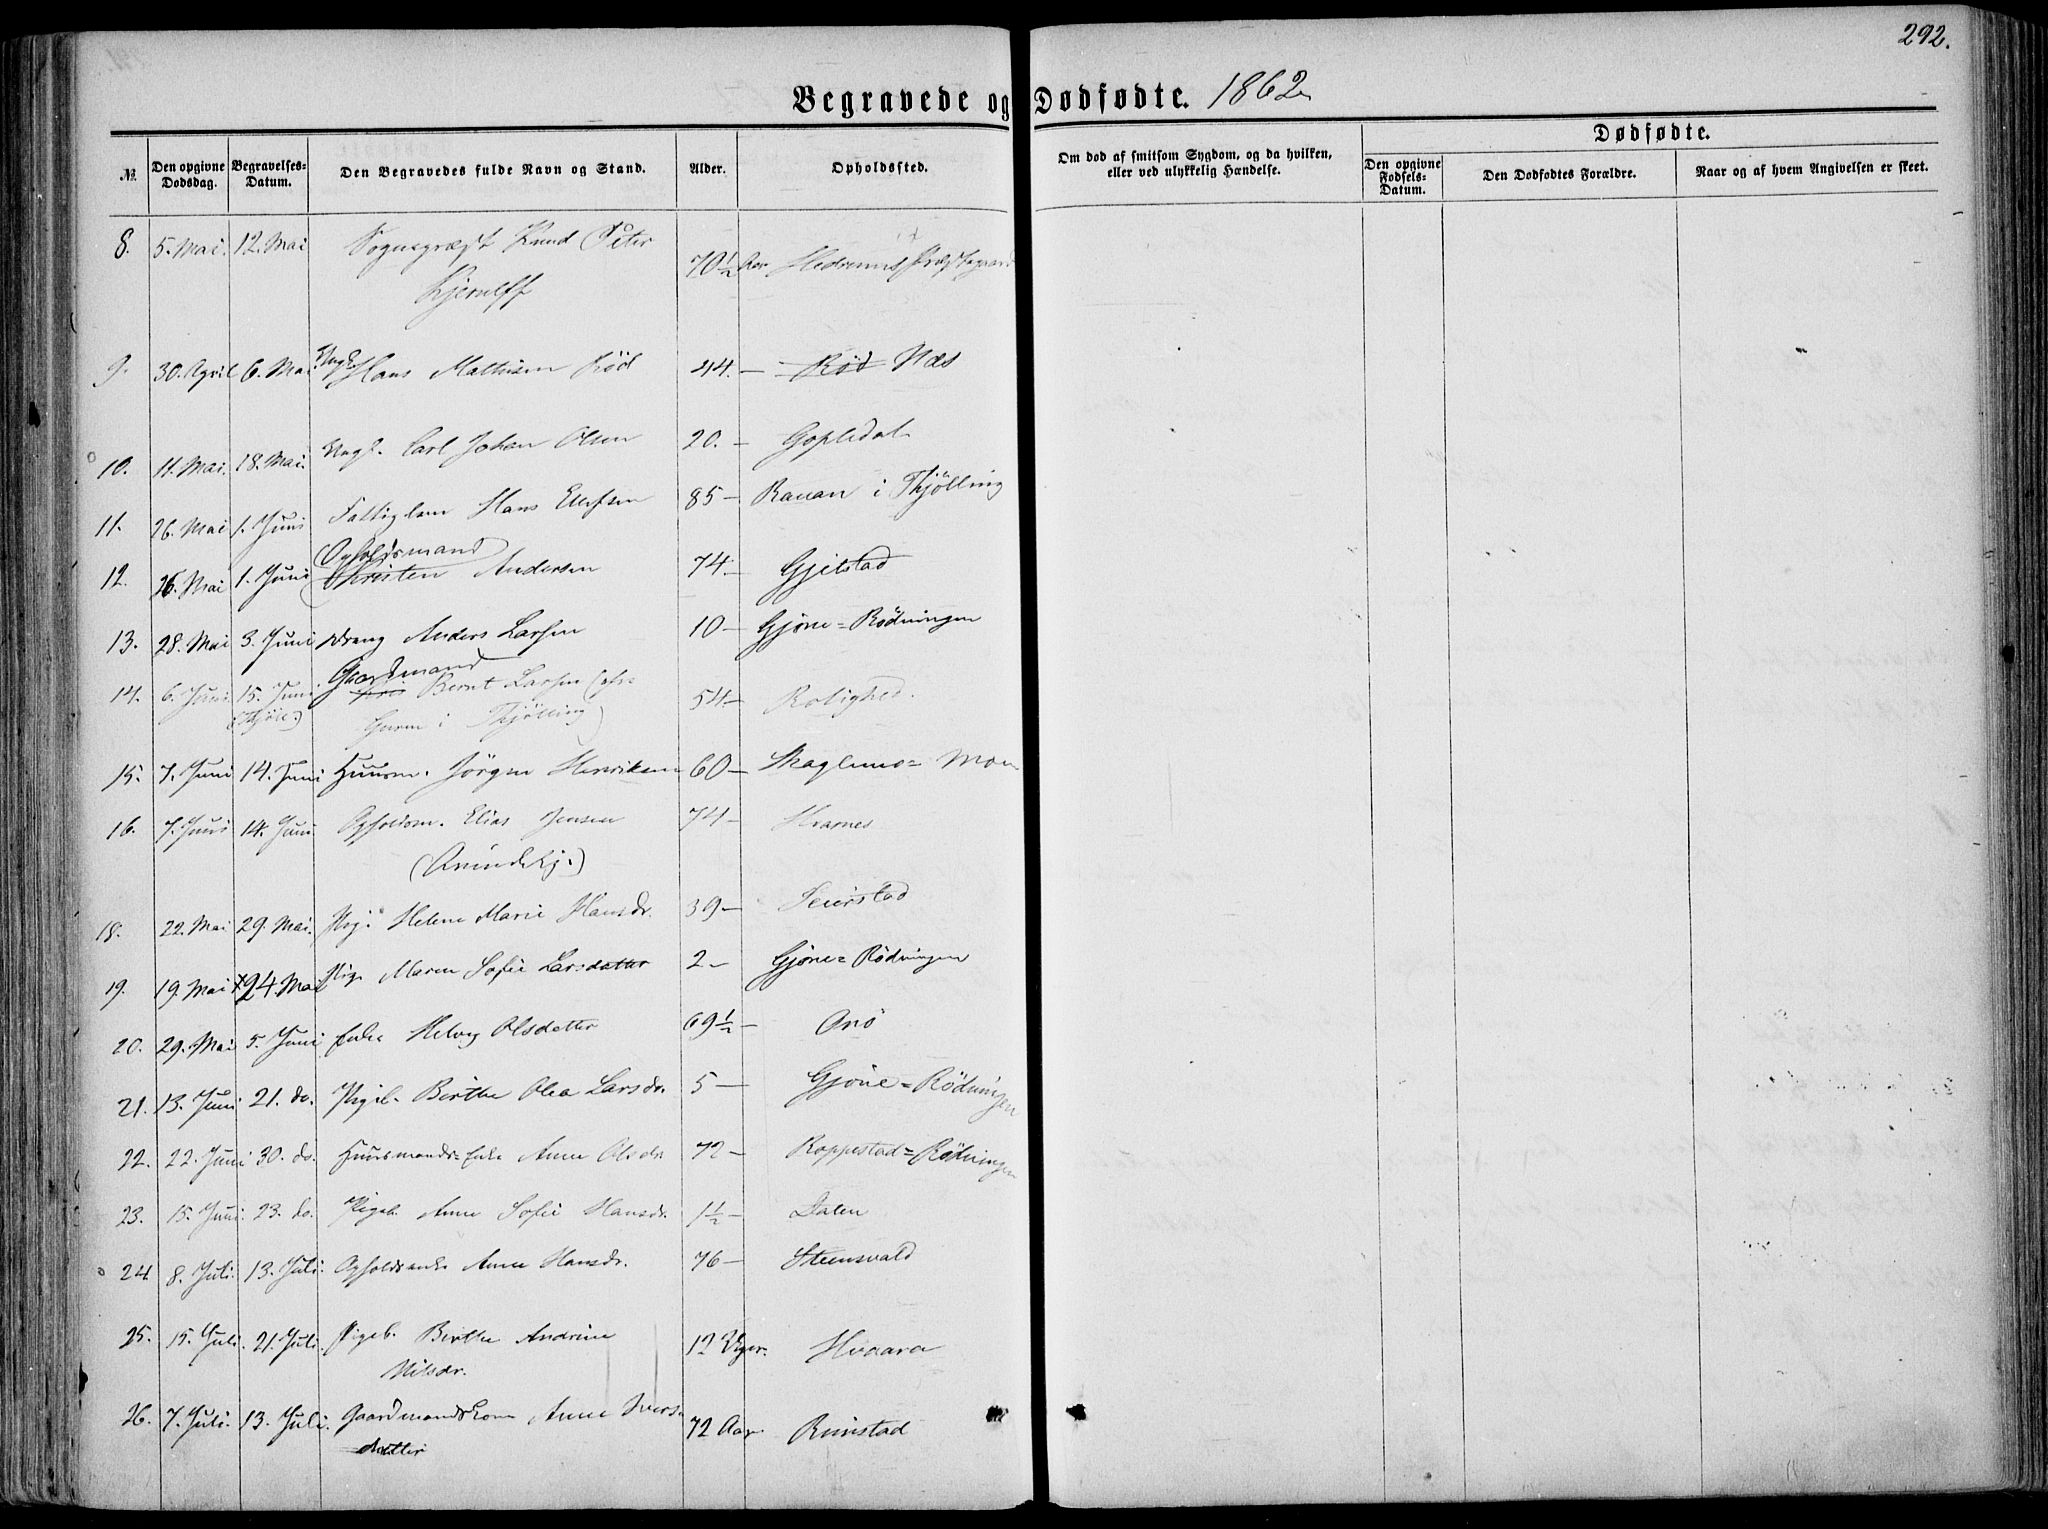 292.
Begravede og Dødfødte. 1862
Dødfødte.
№ Den opgivne Dødsdag. Begravelses-Datum. Den Begravedes fulde Navn og Stand. Alder. Opholdssted. Om død af smitsom Sygdom, og da hvilken, eller ved ulykkelig Hændelse. Den opgivne Fødsels-Datum. Den Dødfødtes Forældre. Naar og af hvem Angivelsen er skeet.
8. 5. Mai. 12. Mai Sognepræst Knud Peter
Kjerulff 70½ Aar Hedrums Præstegaard
9. 30. April 6. Mai Ungk. Hans Mathisen Röd 44. – Röd Næs
10. 11. Mai. 18. Mai. Ungk. Carl Johan Olsen 20. – Gopledal
11. 26. Mai 1. Juni Fattiglem Hans Ellefsen 85 – Rauan i Thjölling
Opholdsmand
12. 26. Mai 1. Juni Christen Andersen 74. – Gjelstad
13. 28. Mai 3. Juni Dreng Anders Larsen 10 – Gjöne = Rödningen
Gaardmand
14. 6. Juni 15. Juni Bernt Larsen 54 – Rolighed.
(Thjöl.) i Thjölling)
15. 7. Juni 14. Juni Huusm. Jörgen Henriksen 60 – Skaglund = Moen
16. 7. Juni 14. Juni Opholdsm. Elias Jensen 74 – Hvarnes
18. 22. Mai 29. Mai. Pig. Helene Marie Hansdr. 39 – Seierstad
19. 19. Mai 24. Mai Pig. Maren Sofie Larsdatter 2 – Gjöne = Rödningen
20. 29. Mai 5. Juni Enke Helvig Olsdatter 69½ – Onö
21. 13. Juni 21. do. Pigeb. Birthe Olea Larsdr. 5 – Gjöne = Rödningen
22. 22. Juni 30. do. Huusmands-Enke Anne Olsdr. 72 – Roppestad = Rödningen
23. 15. Juni 23. do. Pigeb. Anne Sofie Hansdr. 1½ – Dalen
24 8. Juli. 13. Juli. Opholdsenke Anne Hansdr. 76 – Steensvald
25. 15. Juli. 21. Juli. Pigeb. Birthe Andrine
Nilsdr. 12 Uger. Hvaara
26. 7. Juli. 13. Juli. Gaardmandskone Anne Ivers-
datter 72 Aar. Rimstad